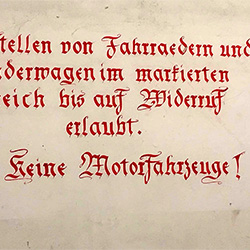 stellen von Fahrraedern und
derwagen im markierten
reich bis auf Widerruf
erlaubt.
Keine Motorfahrzeuge!